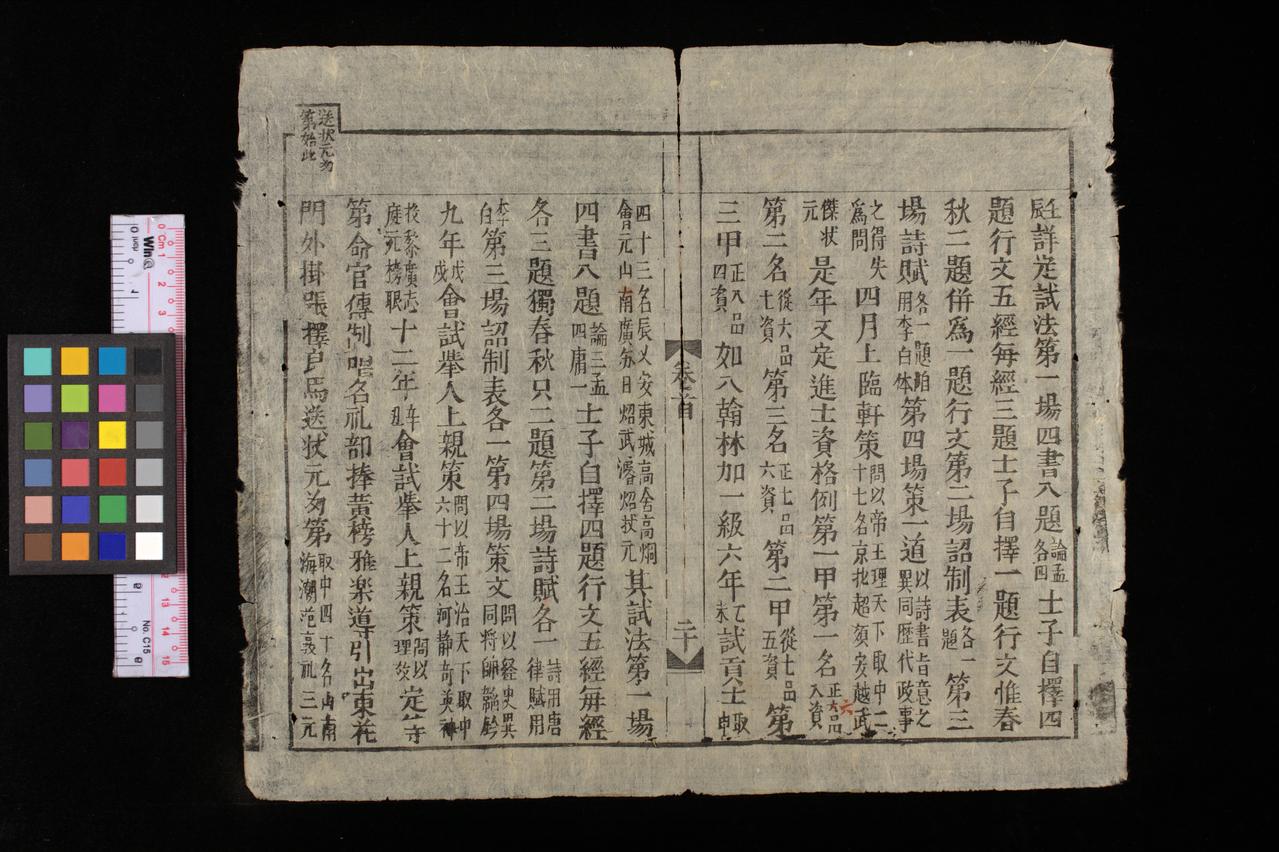 壬辰詳定試法第一場四書八題論孟各四士子自擇四
題行文五經每經三題士子自擇一題行文惟春
秋二題併爲一題行文第二場詔制表各一題第三
場詩賦各一題用李白体第四場策一道以詩書旨意之異同歷代政事
之得失爲問四月上臨軒策問以帝王理天下取中二十七名
傑状元是年文定進士資格例第一甲第一名正六品八資
第二名從六品七資第三名正七品六資第二甲從七品五資第
三甲正八品四資如入翰林加一級六年乙未試貢士取中
四十三名會元山南其試法第一場
四書八題論三孟四庸一士子自擇四題行文五經每經
各三題獨春秋只二題第二場詩賦各一詩用唐律賦用
李白第三場詔制表各一第四場策文問以経史異同将帥韜鈐
九年戊戌會試舉人上親策問以帝王治天下取中六十二名
十二年辛丑會試舉人上親策定等
第命官傳制唱名礼部捧黃榜雅樂導引出東花
門外掛張擇良馬送状元歸第取中四十名山南海潮范 三元
送状元歸第始此
卷首
二十
Cm
No. C15